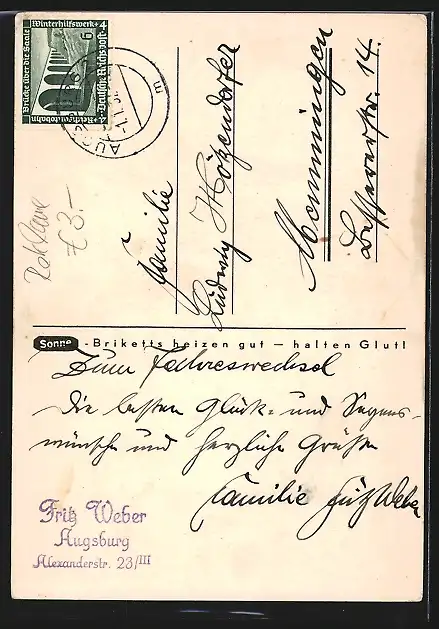 Winterhilfswerk
6+4
Deutsche Reichspost
Reichsautobahn
Brücke über die Saale
AUGSBURG
m
€ 3.-
Familie
Ludwig Hötzendorfer
Memmingen
str. 14.
Sonne -Briketts heizen gut — halten Glut!
Zum Jahreswechsel
die besten Glück- und Segens-
wünsche und herzliche Grüße
Familie Fritz Weber
Fritz Weber
Augsburg
Alexanderstr. 23/III